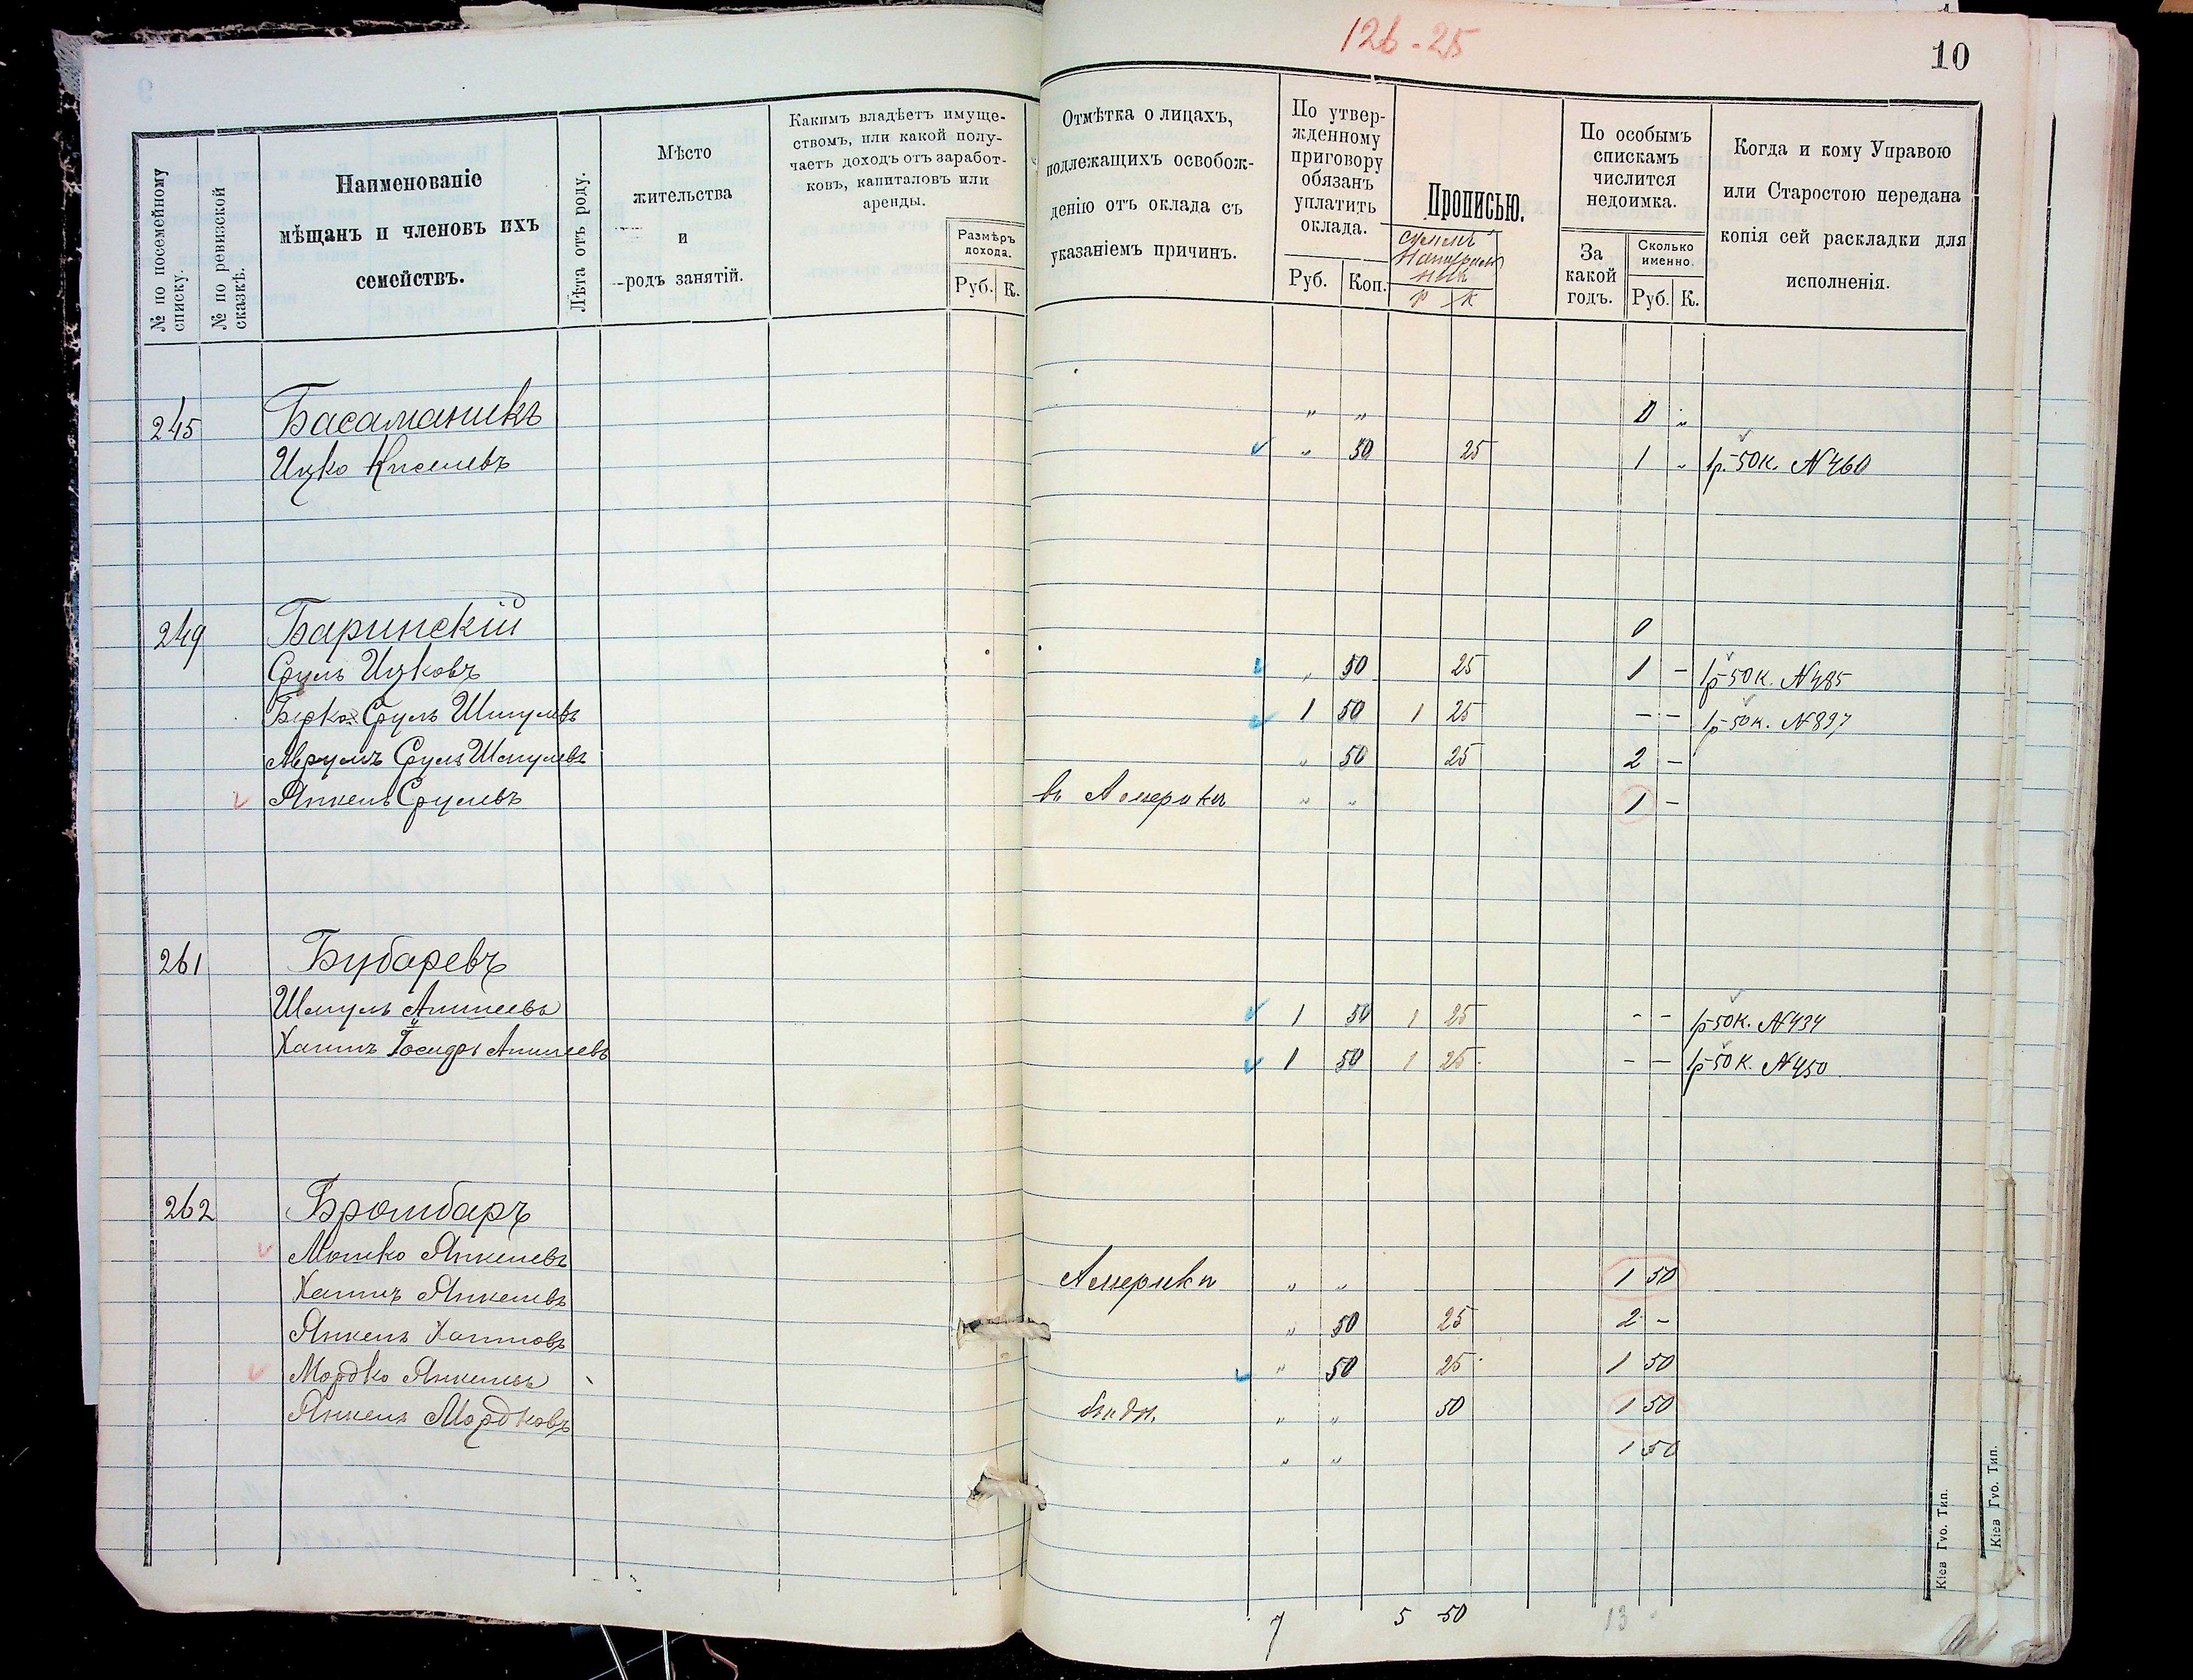 126-25
10
№ по посемейному списку.
№ по ревизской сказкѣ.
Наименованіе
мѣщанъ и членовъ ихъ
семействъ.
Лѣта отъ роду.
Мѣсто
жительства
и
родъ занятій.
Какимъ владѣетъ имуще-
ствомъ, или какой полу-
чаетъ доходъ отъ заработ-
ковъ, капиталовъ или
аренды.
Размѣръ
дохода.
Руб. К.
Отмѣтка о лицахъ,
подлежащихъ освобож-
денію отъ оклада съ
указаніемъ причинъ.
По утвер-
жденному
приговору
обязанъ
уплатить
оклада.
Руб. Коп.
Прописью.
Р К
По особымъ
спискамъ
числится
недоимка.
За
какой
годъ.
Сколько
именно.
Руб. К.
Когда и кому Управою
или Старостою передана
копія сей раскладки для
исполненія.
245 Басаманикъ " " 0 "
Ицко Киселевъ " 50 25 1 " 1р. 50к. N460
249 Баринскій 0
Сруль Ицковъ " 50 25 1 - 1р 50к. N485
Берко Сруль Шмулевъ 1 50 1 25 - - 1р 50к. N897
Аврумъ Сруль Шмулевъ " 50 25 2 -
Янкель Срулевъ въ Америкѣ " " 1 -
261 Бубаревъ
Шмуль Аншеевъ 1 50 1 25 - - 1р 50к. N434
Хаимъ Аншеевъ 1 50 1 25 - - 1р 50к. N450
262 Бромбаръ
Мошко Янкелевъ Америка " " 1 50
Хаимъ Янкелевъ " 50 25 2 -
Янкель Хаимовъ " 50 25 1 50
Мордко Янкелевъ " " 50 1 50
Янкель Мордковъ " " 1 50
7 5 50 13
Кіев Губ. Тип.
Кіев Губ. Тип.